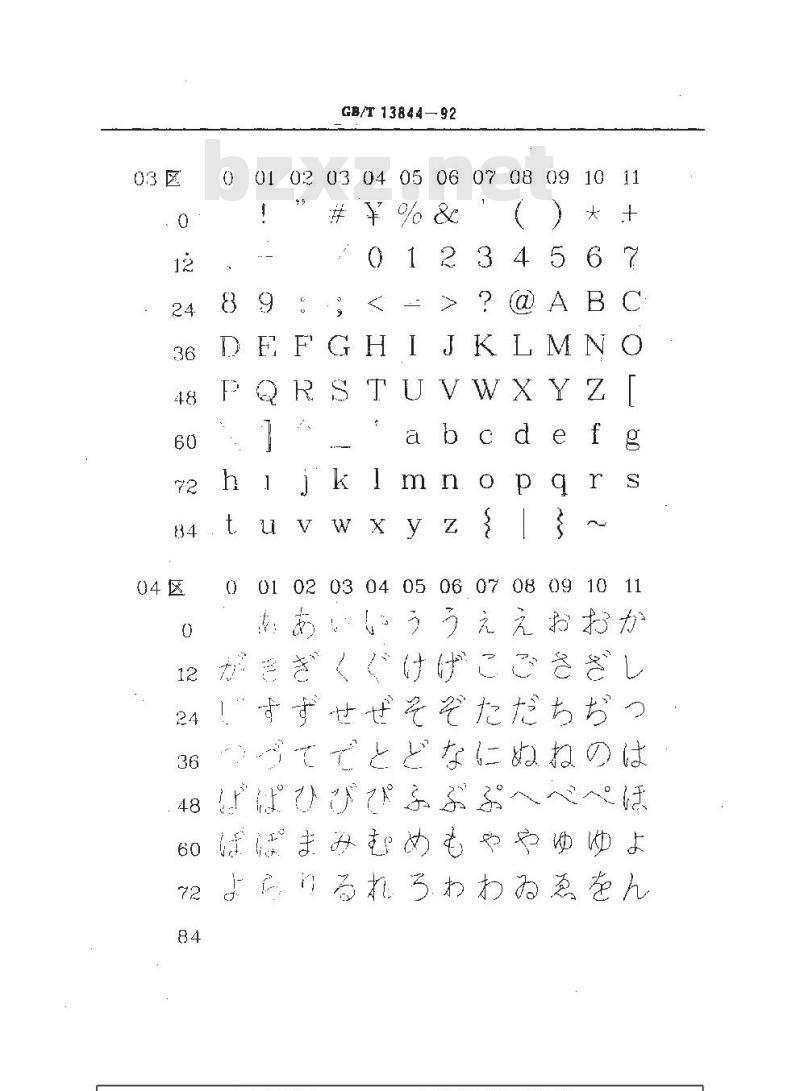 GB/T 13844—92
bzxz.net
03区 0 01 02 03 04 05 06 07 08 09 10 11
0 ! ” # ¥ % & ' ( ) * +
12 , - . / 0 1 2 3 4 5 6 7
24 8 9 : ; < = > ? @ A B C
36 D E F G H I J K L M N O
48 P Q R S T U V W X Y Z [
60 \ ] ^ _ ‘ a b c d e f g
72 h i j k l m n o p q r s
84 t u v w x y z { | } ~
04区 0 01 02 03 04 05 06 07 08 09 10 11
0 ぁ あ ぃ い ぅ う ぇ え ぉ お か
12 が き ぎ く ぐ け げ こ ご さ ざ し
24 じ す ず せ ぜ そ ぞ た だ ち ぢ っ
36 つ づ て で と ど な に ぬ ね の は
48 ば ぱ ひ び ぴ ふ ぶ ぷ へ べ ぺ ほ
60 ぼ ぽ ま み む め も ゃ や ゅ ゆ ょ
72 よ ら り る れ ろ ゎ わ ゐ ゑ を ん
84